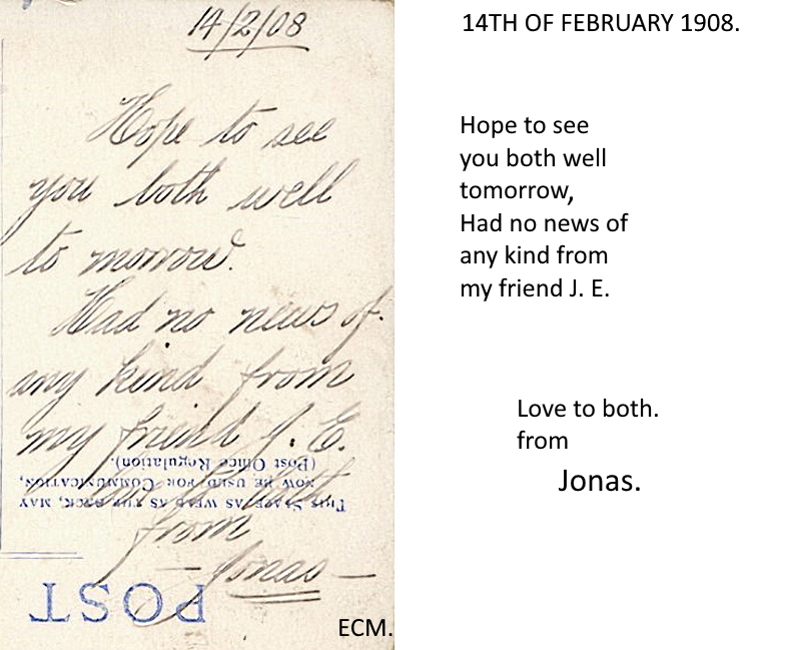 14/2/08
Hope to see
you both well
to morrow.
Had no news of
any kind from
my friend J. E.
Love to both
from
Jonas
THIS SPACE, AS WELL AS THE BACK, MAY
NOW BE USED FOR COMMUNICATION,
(Post Office Regulation).
POST
ECM.
14TH OF FEBRUARY 1908.
Hope to see
you both well
tomorrow,
Had no news of
any kind from
my friend J. E.
Love to both.
from
Jonas.